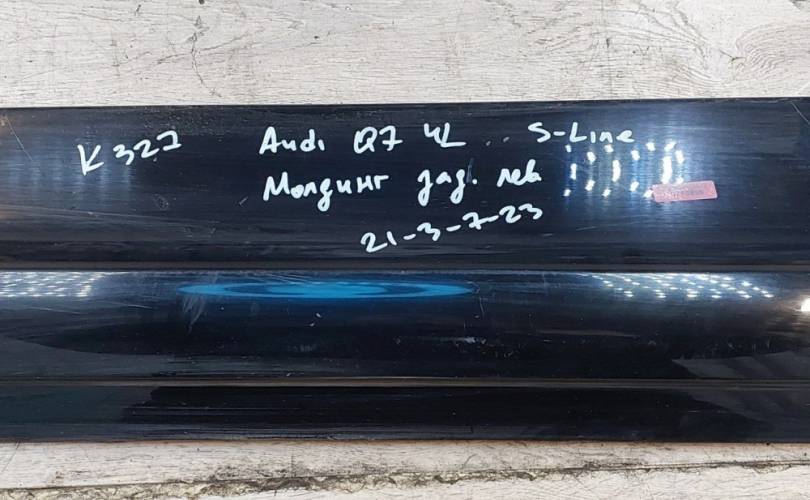 K327 Audi Q7 4L .. S-Line
Молдинг зад. лев.
21-3-7-23